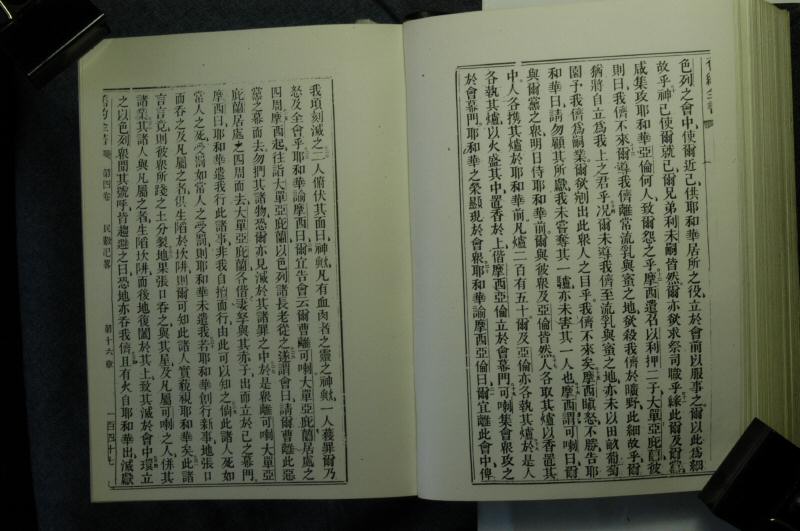 色列之會中使爾近己供耶和華居所之役立於會前以服事之爾以此為細
故乎神已使爾就己爾兄弟利未嗣皆然爾亦欲求祭司職乎緣此爾及爾黨
咸集攻耶和華亞倫何人致爾怨之乎摩西遣召以利押二子大單亞庇蘭彼
則曰我儕不來爾導我儕離常流乳與蜜之地欲殺我儕於曠野此細故乎爾
猶將自立為我上之君乎况爾未導我儕至流乳與蜜之地亦未以田畝葡萄
園予我儕為嗣業爾欲剜出此衆人之目乎我儕不來矣摩西瞋怒不勝告耶
和華曰請勿顧其所獻我未嘗奪其一驢亦未害其一人也摩西謂可喇曰爾
與爾黨之衆明日侍耶和華前爾與彼衆及亞倫皆然人各取其爐以香置其
中人各携其爐於耶和華前凡爐二百有五十爾及亞倫亦各執其爐於是人
各執其爐以火盛其中置香於上偕摩西亞倫立於會幕門可喇集會衆攻之
於會幕門耶和華之榮顯現於會衆耶和華諭摩西亞倫曰爾宜離此會中俾
我頃刻滅之二人俯伏其面曰神歟凡有血肉者之靈之神歟一人獲罪爾乃
怒及全會乎耶和華諭摩西曰爾宜告會云爾曹離可喇大單亞庇蘭居處之
四周摩西起往詣大單亞庇蘭以色列諸長老從之遂謂會曰請爾曹離此惡
黨之幕而去勿捫其諸物恐爾亦見滅於其諸罪之中於是衆離可喇大單亞
庇蘭居處之四周而去大單亞庇蘭各偕妻孥與其赤子出而立於己之幕門
摩西曰耶和華遣我行此諸事非我自招而行由此可以知之倘此諸人死如
常人之死受罰如常人之受罰則耶和華未遣我若耶和華創行新事地張口
而吞之及凡屬之者俱生陷於坎阱則爾可知此諸人實藐視耶和華矣此諸
言言竟則彼衆所踐之土分裂地果張口吞之與其屋及凡屬可喇之人併其
諸業其諸人與凡屬之者生陷坎阱而後地復闔於其上致其滅於會中環立
之以色列衆聞其號呼皆趨避之曰恐地亦吞我儕且有火自耶和華出滅獻
第四卷 民數記畧 第十六章 一百四十七